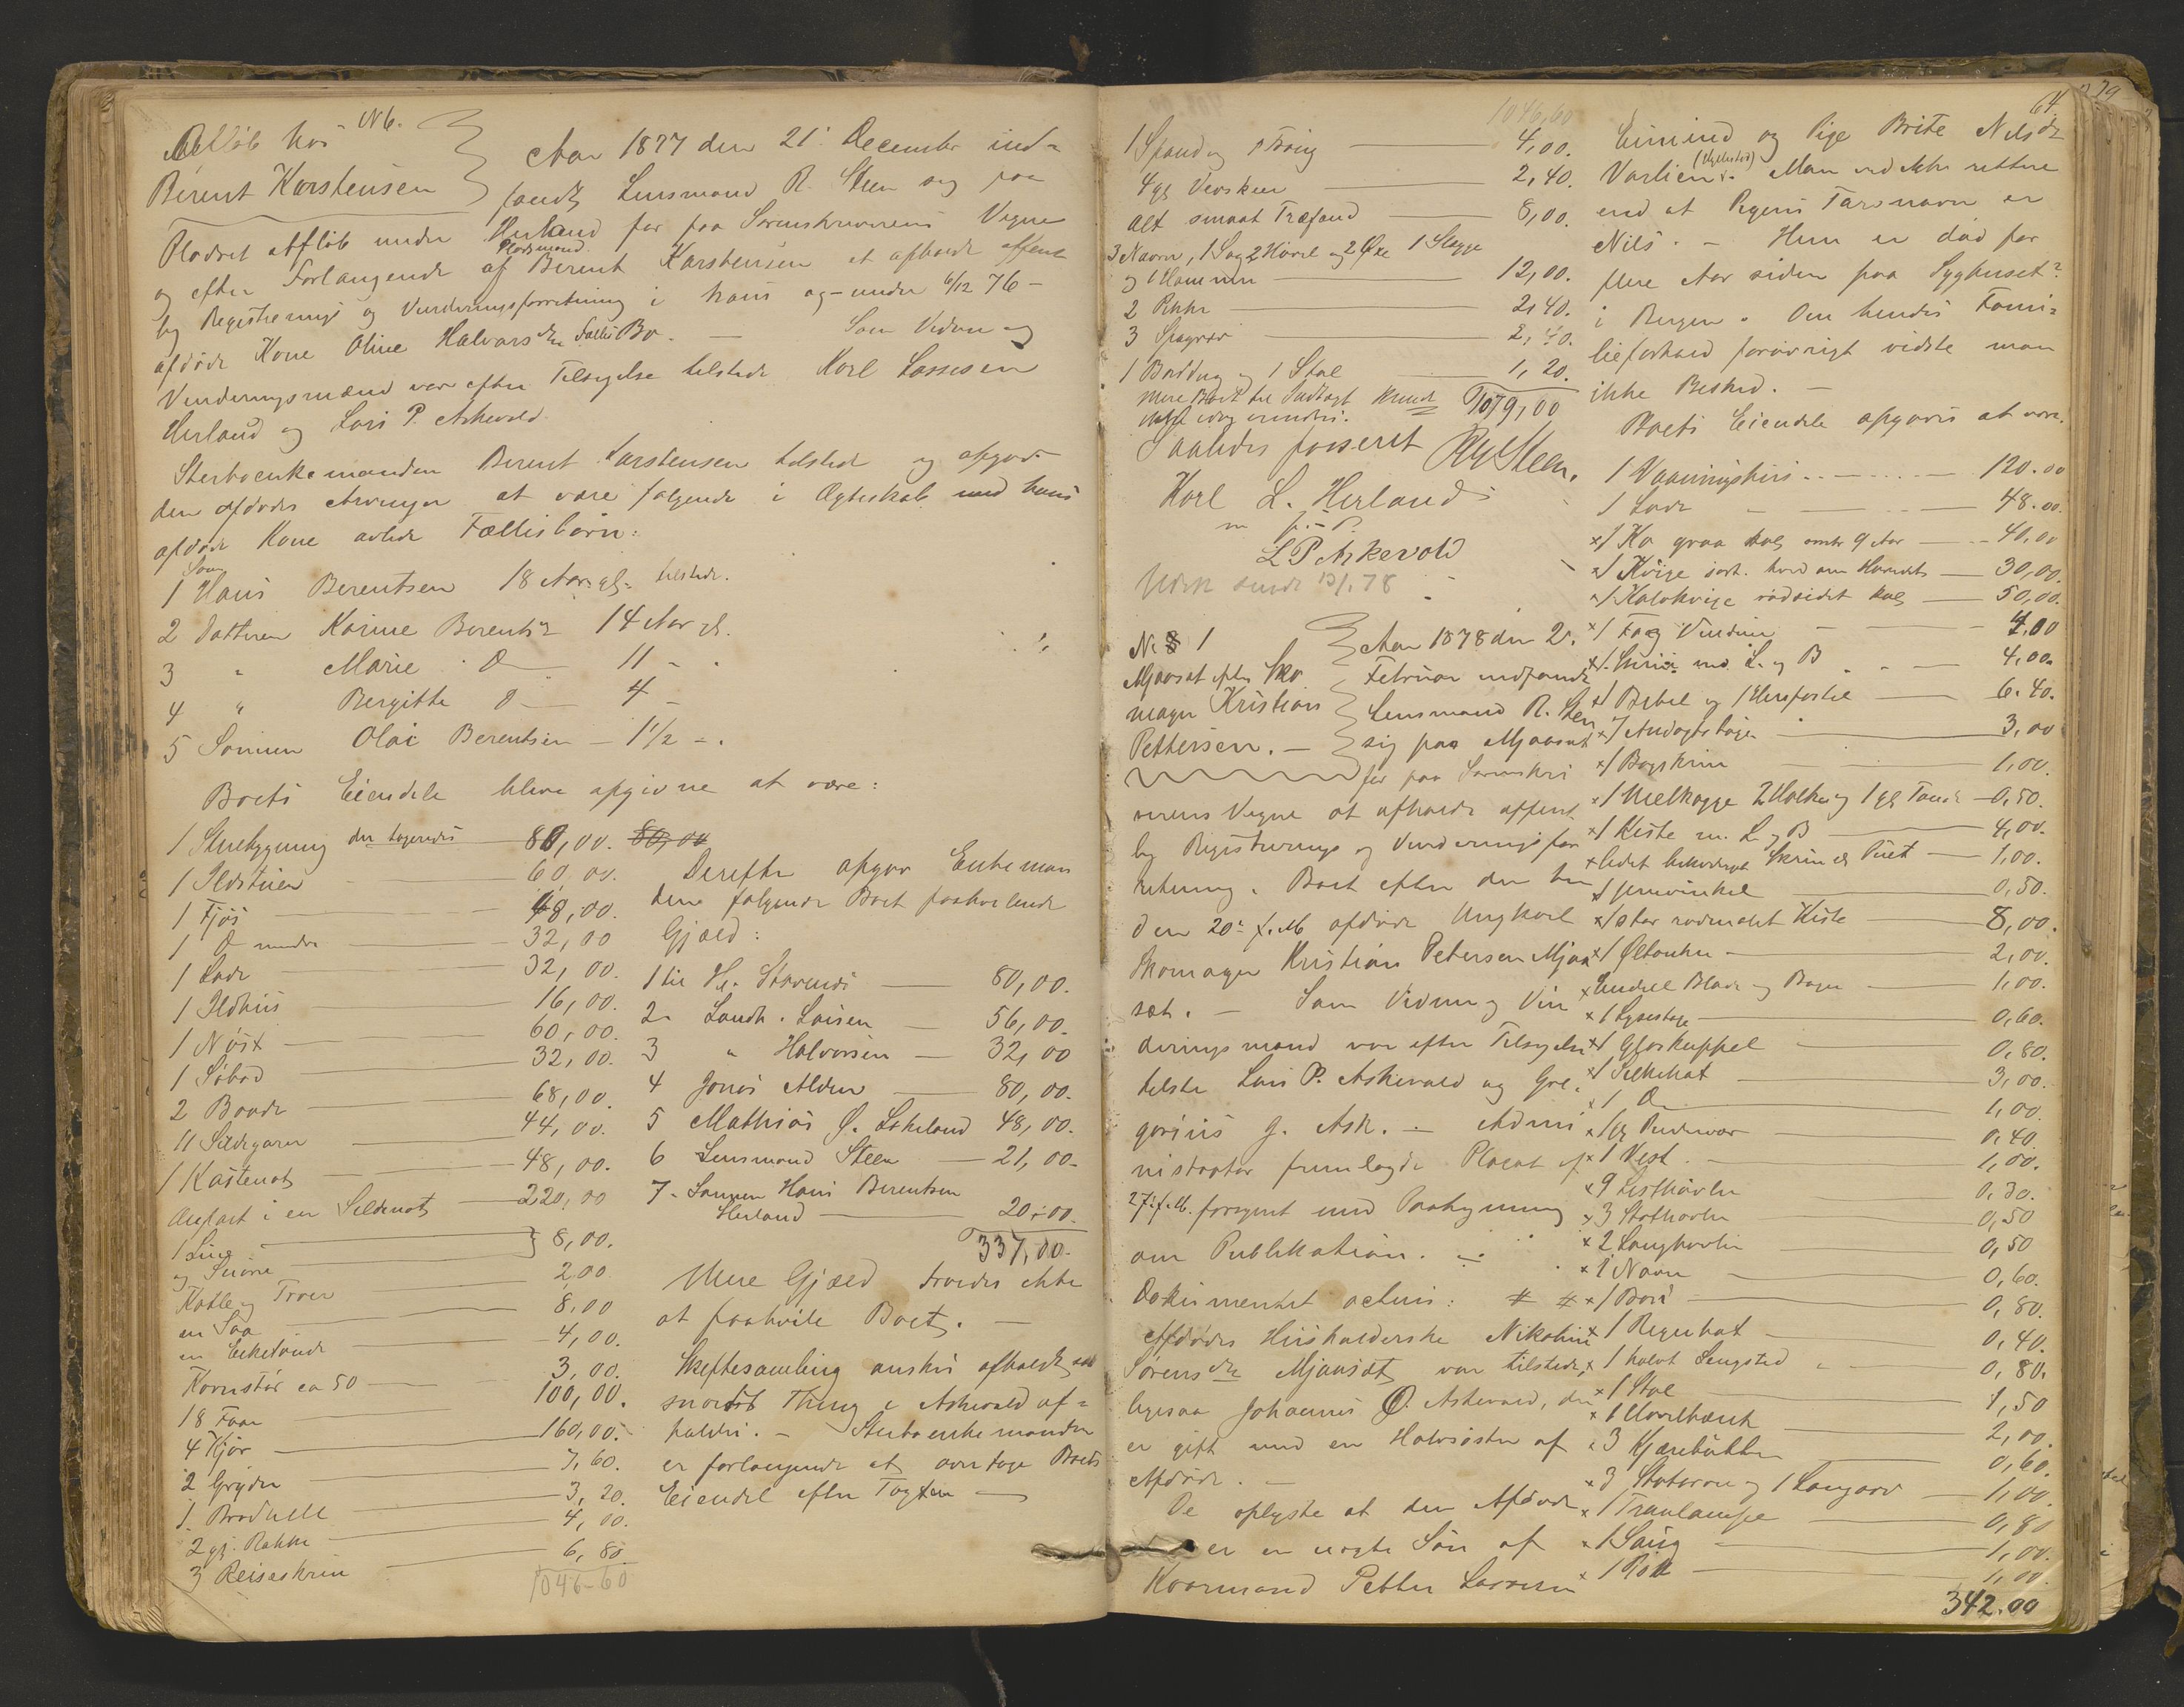 N 6.
Afløb hos
Berent Karstensen
Aar 1877 den 21. December ind-
fandt Lensmand R. Steen sig paa
Pladset Afløb under Herland for paa Sorenskriverens Vegne
og efter Forlangende af Pladsmand Berent Karstensen at afholde offent
lig Registrerings og Vurderingsforretning i hans og under 6/12 76 -
afdøde Kone Oline Halvorsdtr Fælles Bo. — Som Vidner og
Vurderingsmænd var efter Tilsigelse tilstede Karl Lassesen
Herland og Lars P. Askevold.
Sterboenkemanden Berent Karstensen tilstede og opgav
den afdødes Arvinger at være følgende i Ægteskab med hans
afdøde Kone avlede Fællesbørn:
1 Søn Hans Berentsen 18 Aar gl. tilstede.
2 Datteren Karine Berentsdr 14 Aar gl.
3 " Marie Do 11 -
4 " Bergitte Do 4 -
5 Sønnen Olai Berentsen - 1 1/2 -
Boets Eiendele bleve opgivne at være:
1 Stuebygning — 80,00. 80,00
1 Ildstuen — 60,00.
1 Fjøs — 48,00.
1 Do mindre — 32,00
1 Lade — 32,00.
1 Ildhus — 16,00.
1 Nøst — 60,00.
1 Søbod — 32,00.
2 Baade — 68,00.
11 Sildegarn — 44,00.
1 Kastenot — 48,00.
Anpart i en Sildenot — 220,00
1 Line
og Snøre — 8,00.
Kobble og Troer — 2,00
en Saa — 8,00
en Eketønde — 4,00.
Kornstør ca 50 — 3,00.
18 Faar — 100,00.
4 Kjør — 160,00.
2 Gryder — 7,60.
1 Brødhelle — 3,20.
2 gl. Rokke — 4,00.
3 Reiseskrin — 6,80.
1046-60
Derefter opgav Enkeman
den følgende Boet paahvilende
Gjæld:
1 til H. Stavnes — 80,00.
2 - Landh. Larsen — 56,00.
3 " Halvorsen — 32,00
4 Jonas Alden — 80,00.
5 Mathias Ø. Lokeland 48,00.
6 Lensmand Steen — 21,00-
7 - Sønnen Hans Berentsen
Herland — 20,00.
337,00.
Mere Gjæld troedes ikke
at paahvile Boet. —
Skiftesamling ønskes afholdt
snarest Thing i Askevold af-
holdes. — Sterboenkemanden
er forlangende at overtage Boets
Eiendele efter Taxten —
1046,60
1 Spand og 1 Traug — 4,00.
4 gl. Vevskeer — 2,40.
alt smaat Træfand — 8,00.
3 Navrer, 1 Sag 2 Høvle og 2 Øxe 1 Slegge
og 1 Hammer — 12,00.
2 — 2,40.
3 — 2,40.
1 Borddug og 1 Stol — 1,20.
1079,00
Saaledes passeret R. Steen.
Karl L. Herland
m. f. P.
L P Askevold
Udsk sendt 13/1 78
N. 8 1
Mjaaset efter Sko
mager Kristian
Pettersen. —
Aar 1878 den 2.
Februar indfandt
Lensmand R. Steen
sig paa Mjaaset
for paa Sorenskri
verens Vegne at afholde offent
lig Registrerings og Vurderingsfor
retning i Boet efter den
den 20de f. M. afdøde Ungkarl
Skomager Kristian Petersen Mjaa
set. — Som Vidner og Vur
deringsmænd var efter Tilsigelse
tilstede Lars P. Askevold og Gre
gorius J. Ask. — Admi
nistrator fremlagde Placat af
27. f. M. forsynet med Paategning
om Publikation. —
Dokumentet acteres: # #
Afdødes Husholderske Nikoline
Sørensdtr Mjaaset var tilstede,
ligesaa Johannes O. Askevold, der
er gift med en Halvsøster af
Afdøde. —
De oplyste at den Afdøde
er en uægte Søn af
Kaarmand Petter Lassesen
64. 229
Eimind og Pige Brite Nilsdr
Varlien (Hyllestad). Man ved ikke rettere
end at Pigens Farsnavn er
Nils. — Hun er død for
flere Aar siden paa Sygehuset?
i Bergen. Om hendes Fami-
lieforhold forøvrigt vidste man
ikke Besked. —
Boets Eiendele opgaves at være.
1 Vaaningshus — 120.00
1 Lade — 48.00.
x 1 Ko graa kol. omtr 9 Aar — 40,00
x 1 Kvige sort. — 30,00.
x 1 Kalvkvige rødsidet kol — 50,00.
x 1 Faar — 4,00
x 1 — med L. og B — 4,00.
x 1 Bibel og 1 Huspostil — 6.40.
x 7 Andagtsbøger — 3,00
x 1 Bogskrin — 1,00.
x 1 Melkagge 2 Holker og 1 gl Tønde — 0,50.
x 1 Kiste m. L. og B — 4,00.
x Lidet Skrin — 1,00.
x 1 Jernvinkel — 0,50.
x 1 stor rødmalet Kiste — 8,00.
x 1 Øltønne — 2,00.
x Endeel Blade og Bøger — 1,00.
x 1 Lysestage — 0,60.
x 1 Glaskuppel — 0,80.
x 1 Silkehat — 3,00.
x 1 Do — 1,00.
x 1 gl. — 0,40.
x 1 Vest. — 1,00.
x 9 Listhøvler — 0,30.
x 3 Slethøvler — 0,50
x 2 Langhøvler — 0,50
x 1 Navar — 0,60.
x 1 Bord — 0,80.
x 1 Regnhat — 0,40.
x 1 halvt Sengsted — 0,80.
x 1 Stol — 1,50
x 1 Høvelbænk — 2,00.
x 3 Kjærebøtter — 0,60.
x 3 og 1 — 1,00.
x 1 Tranlampe — 0,80
x 1 Saug — 1,00.
x 1 Rok — 1,00.
342.00